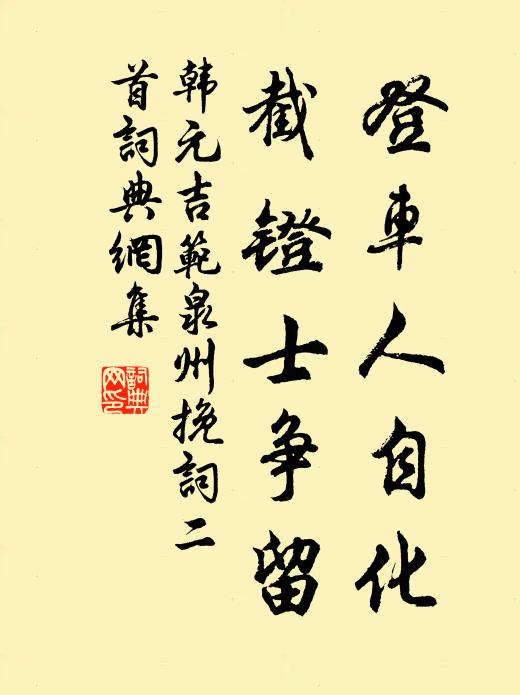 登車人自化
截鐙士爭留
韩元吉範泉州挽詞二
首詞典網集
詞典
网印